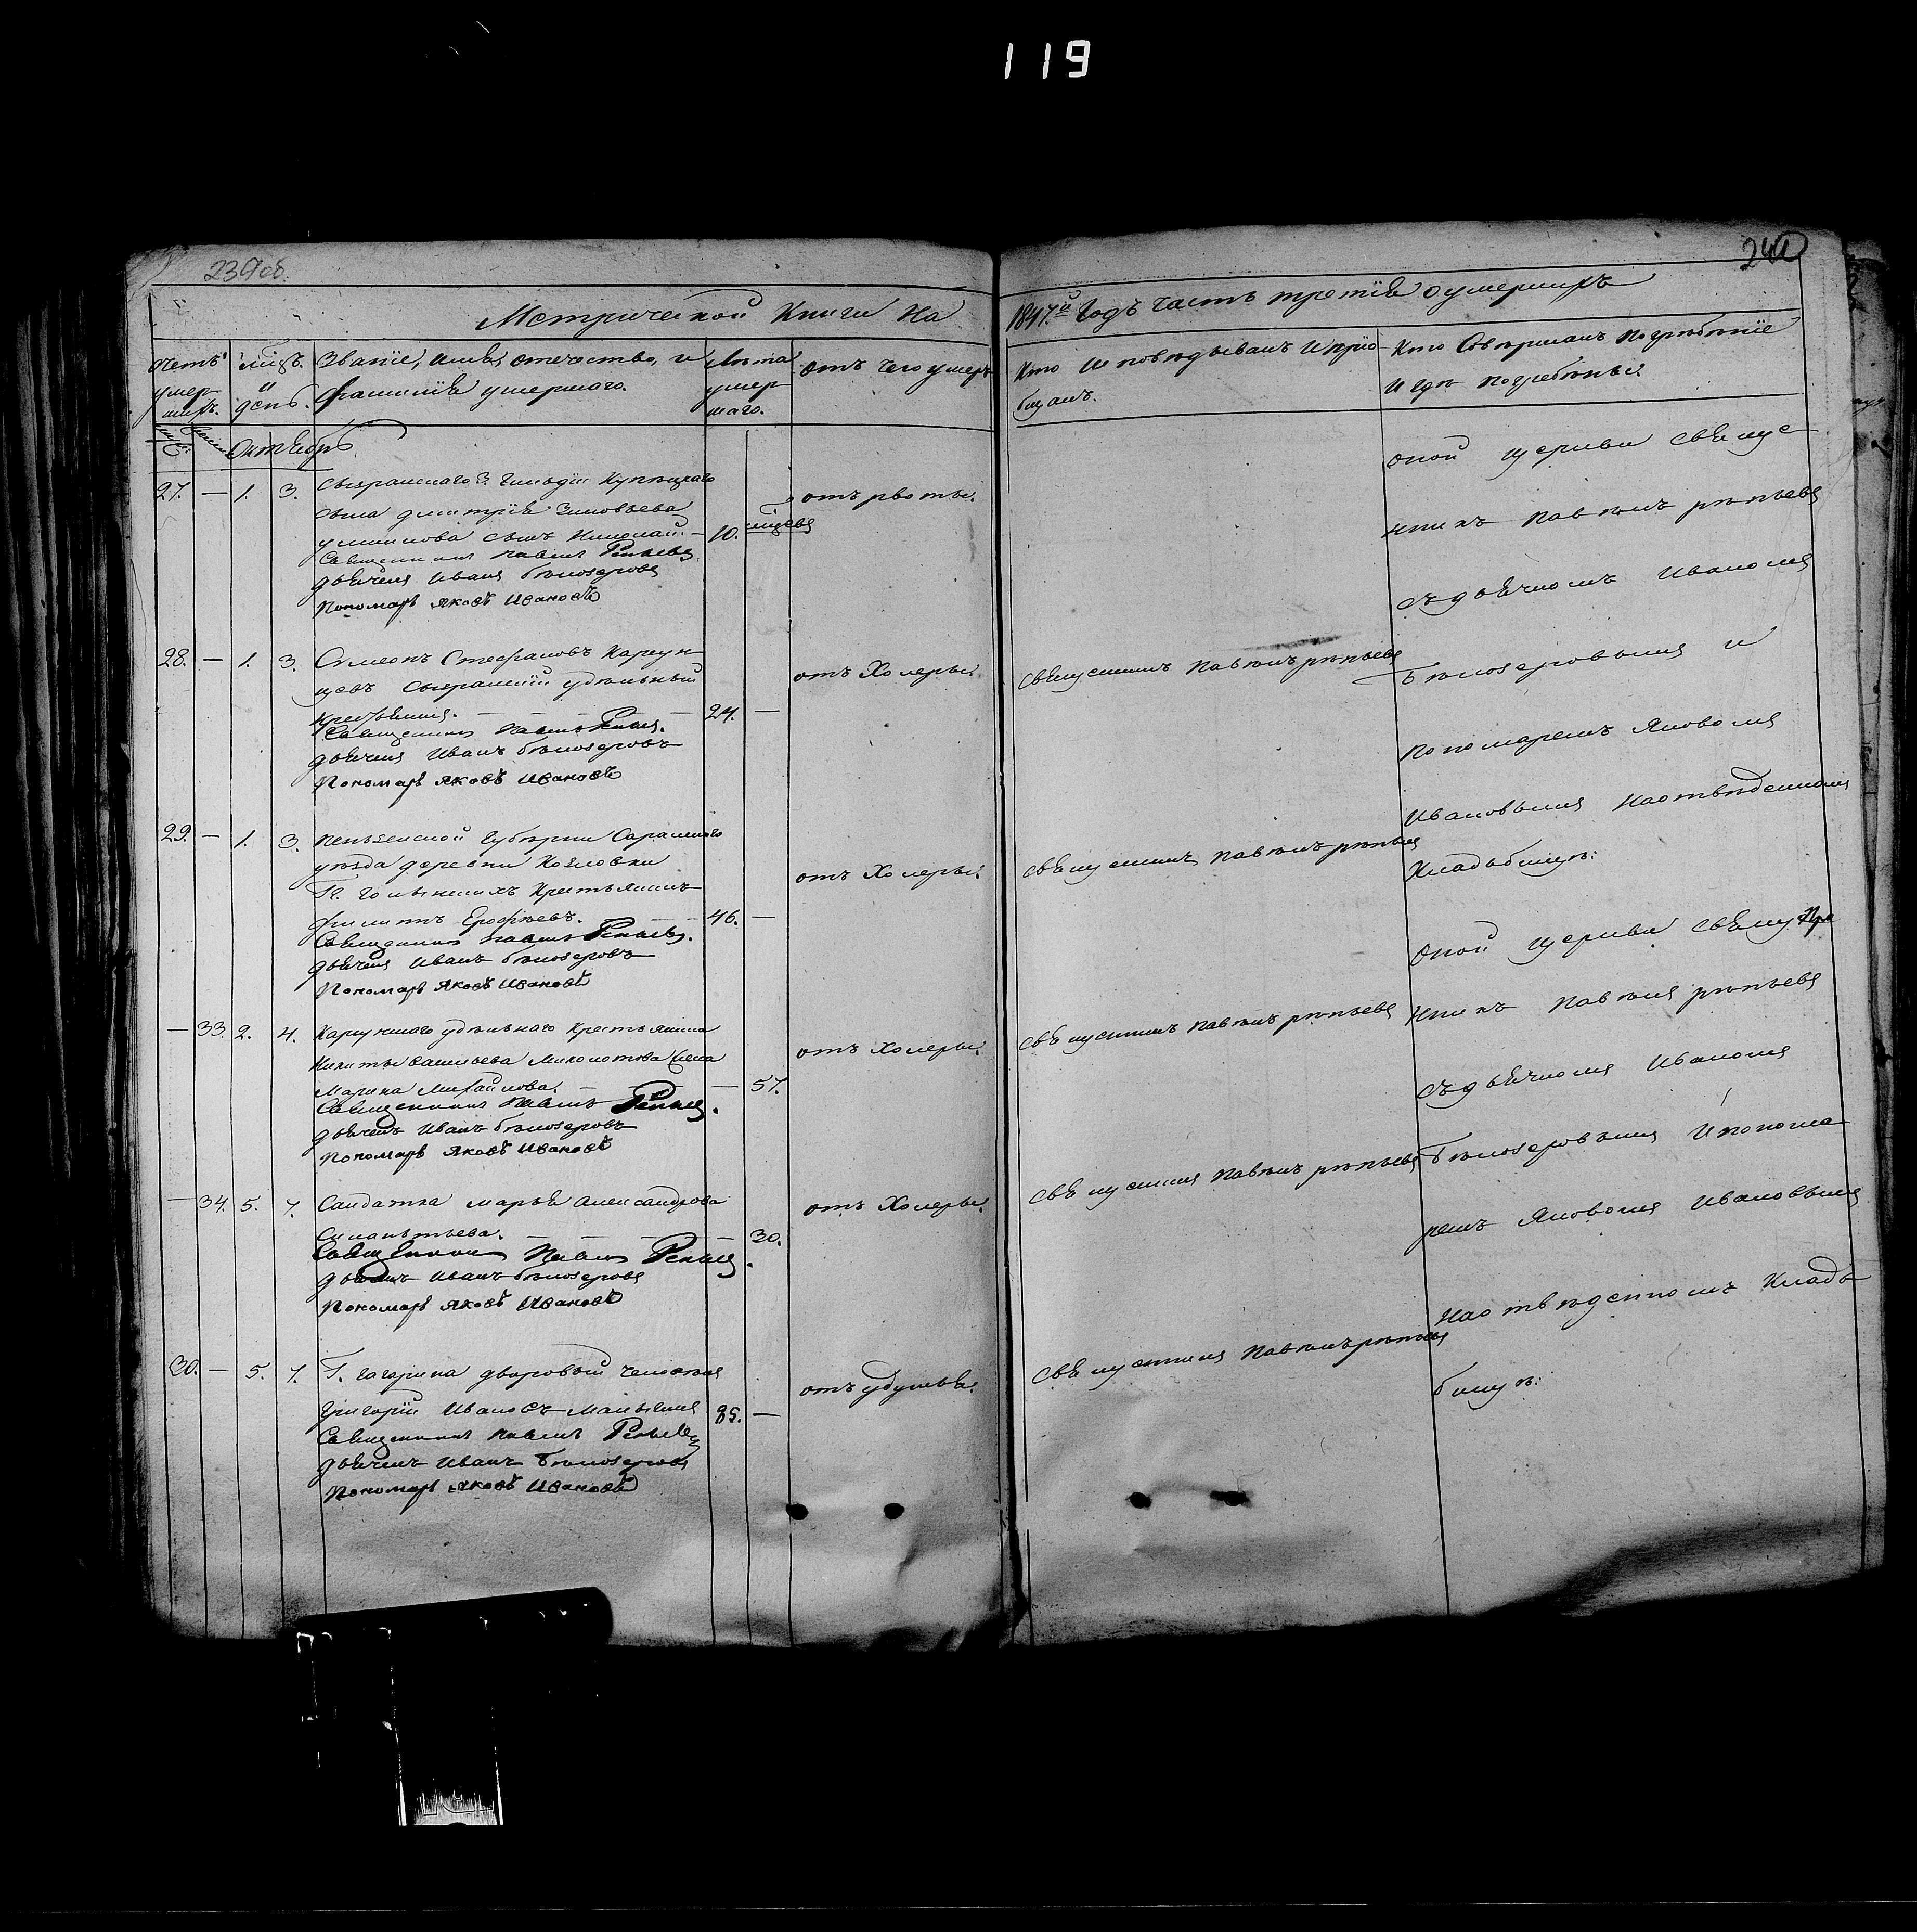 119
239 об.
240
Метрической Книги На
1847.й Годъ часть третія о умершихъ
Счетъ умершихъ.
мѣсц. и день.
Званіе, имя, отечество, и фамилія умершаго.
Лѣта умершаго.
отъ чего умеръ
Кто Исповѣдывалъ И пріобщалъ.
Кто Совершалъ Погребеніе
И гдѣ погребены.
Октябрь
27. — 1. 3. Сызранскаго 3. Гильдіи Купецкаго
сына Димитрія Зиновьева
сынъ Николай — 10. мѣсяцевъ
отъ рвоты.
Священникъ Павелъ Репьевъ
дьячекъ Иванъ Бѣлозеровъ
Пономарь Яковъ Ивановъ
28. — 1. 3. Симеонъ Стефановъ
Сызранскій удѣльный
крестьянинъ. — — — 24. —
отъ Холеры.
Священникъ Павелъ Рѣпьевъ
Священникъ Павелъ Репьевъ.
дьячекъ Иванъ Бѣлозеровъ
Пономарь Яковъ Ивановъ
29. — 1. 3. Пензенской Губерніи Саранскаго
уѣзда деревни Козловки
Гг. Крестьянинъ
Филиппъ Ерофѣевъ. — — 46. —
отъ Холеры.
Священникъ Павелъ Рѣпьевъ
Священникъ Павелъ Репьевъ.
дьячекъ Иванъ Бѣлозеровъ
Пономарь Яковъ Ивановъ
— 33. 2. 4. удѣльнаго крестьянина
Никиты Васильева жена
Марина Михайлова. — — — 57.
отъ Холеры.
Священникъ Павелъ Рѣпьевъ
Священникъ Павелъ Репьевъ.
дьячекъ Иванъ Бѣлозеровъ
Пономарь Яковъ Ивановъ
— 34. 5. 7. Салдатка Марья Александрова
Силантьева. — — — — 30.
отъ Холеры.
Священникъ Павелъ Рѣпьевъ
Священникъ Павелъ Репьевъ.
дьячекъ Иванъ Бѣлозеровъ
Пономарь Яковъ Ивановъ
30. — 5. 7. Г. Гагарина дворовый человѣкъ
Григорій Ивановъ 85. —
отъ удушья.
Священникъ Павелъ Рѣпьевъ
Священникъ Павелъ Репьевъ
дьячекъ Иванъ Бѣлозеровъ
Пономарь Яковъ Ивановъ
оной церкви Священ-
никъ Павелъ Рѣпьевъ
съ дьячкомъ Иваномъ
Бѣлозеровымъ и
Пономаремъ Яковомъ
Ивановымъ На отведенномъ
Кладбищѣ:
оной церкви
никъ Павелъ Рѣпьевъ
съ дьячкомъ Иваномъ
Бѣлозеровымъ И понома-
ремъ Яковомъ Ивановымъ
На отведенномъ Кладъ-
бищѣ: